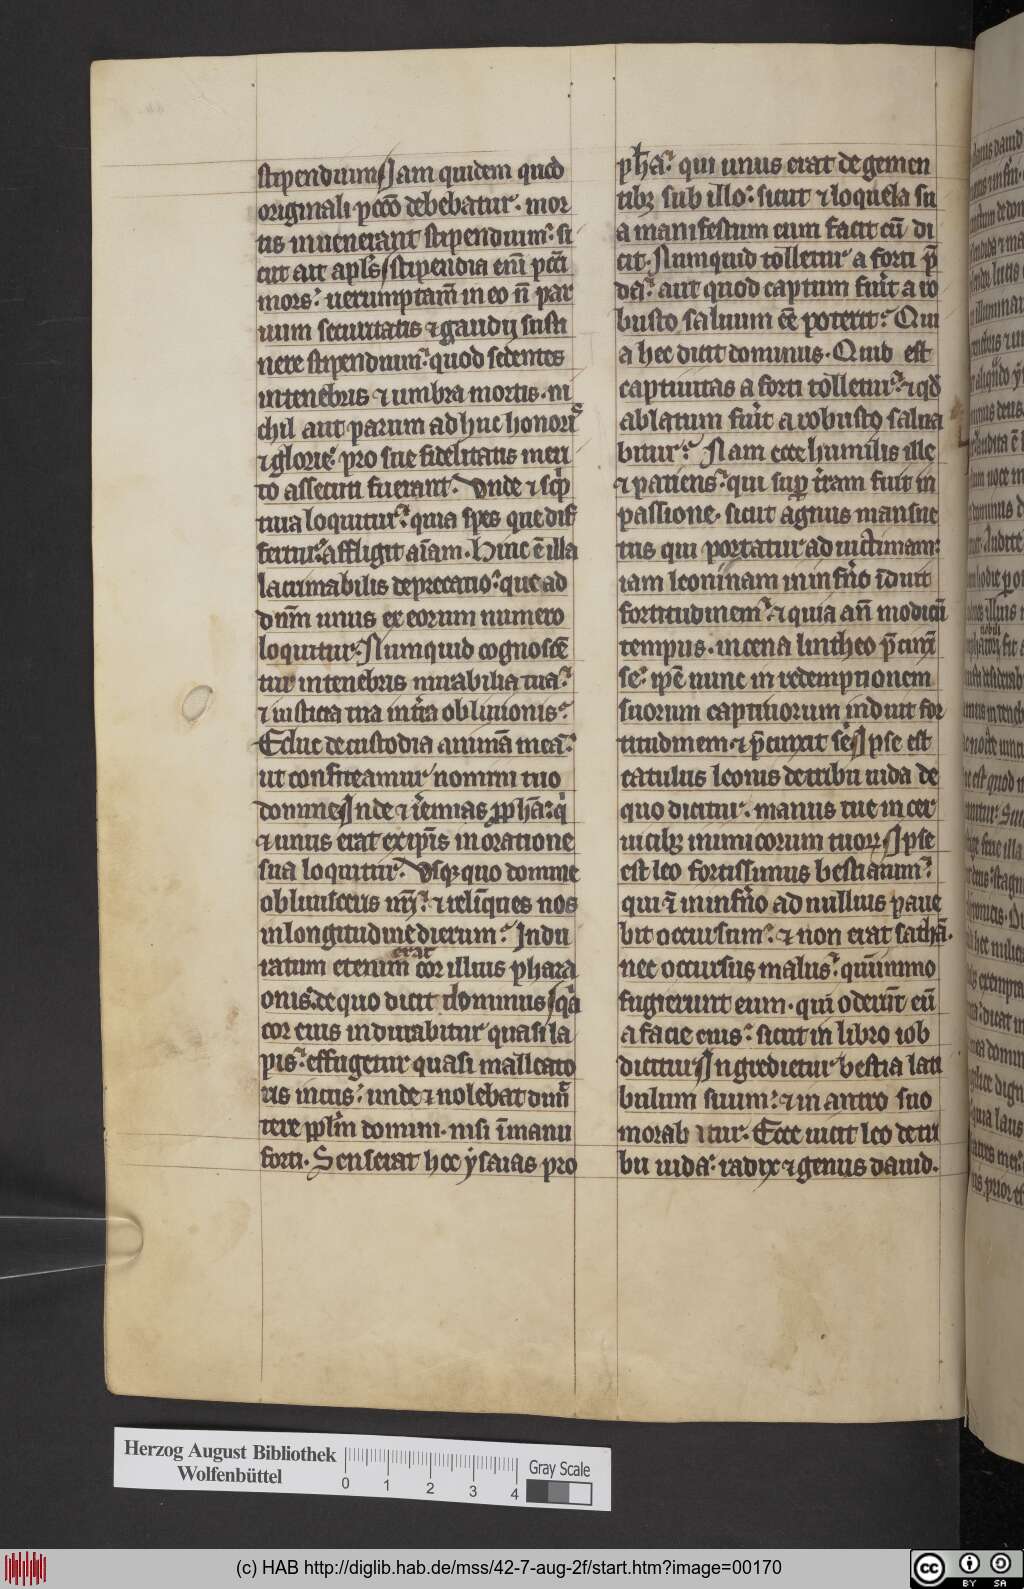 stipendium Jam quidem quod
originali pcc̄o debebatur· mor
tis inuenerant stipendium: si
cut ait apl's stipendia eni̅ pcc̄i
mors: uerumptam̄ in eo n̄ par
uum securitatis ⁊ gaudij susti
nere stipendium: quod sedentes
in tenebris ⁊ umbra mortis· ni
chil aut parum adhuc honoris
⁊ glorie: pro sue fidelitatis meri
to assecuti fuerant· Vnde ⁊ sc̄p
tura loquitur: quia spes que dif
fertur: affligit ai̅am· Hinc ē illa
lacrimabilis deprecatio: que ad
dn̄m unus ex eorum numero
loquitur· Numquid cognosce̅
tur in tenebris mirabilia tua:
⁊ iusticia tua in t̄ra obliuionis:
Educ de custodia animā meā:
ut confiteamur nomini tuo
domine Inde ⁊ ieremias ꝓph̄a: q̄
⁊ unus erat ex ip̄is in oratione
sua loquitur· Vsq quo domine
obliuisceris nr̄i: ⁊ reliq̄ues nos
in longitudine dierum: Indu
ratum etenim erat cor illius phara
onis: de quo dicit dominus q̄a
cor eius indurabitur quasi la
pis: effugetur quasi malleato
ris incus: unde ⁊ nolebat dimit
tere ppl'm domini· nisi i̅ manu
forti· Senserat hec ysaias pro
ph̄a: qui unus erat de gemen
tibꝫ sub illo: sicut ⁊ loquela su
a manifestum eum facit cū di
cit· Numquid tolletur a forti p̄
da: aut quod captum fuerit a ro
busto saluum eē poterit: Qui
a hec dicit dominus· Quid est
captiuitas a forti tolletur: ⁊ qd̄
ablatum fuerit a robusto salua
bitur: Nam ecce humilis ille
⁊ patiens: qui sup t̄ram fuit in
passione· sicut agnus mansue
tus qui portatur ad uictimam:
iam leoninam in inf'no i̅duit
fortitudinem: ⁊ quia an̄ modicū
tempus· in cena lintheo p̄cinx̄
se: ip̄e nunc in redemptionem
suorum captiuorum induit for
titudinem ⁊ p̄cinxit se Ipse est
catulus leonis de tribu iuda de
quo dicitur· manus tue in cer
uicibꝫ inimicorum tuoꝝ Ipse
est leo fortissimus bestiarum:
qui ⁊ in inf'no ad nullius paue
bit occursum: ⁊ non erat sathā·
nec occursus malus: quinimmo
fugierunt eum· qui oderūt eū
a facie eius: sicut in libro iob
dicitur Ingredietur bestia lati
bulum suum: ⁊ in antro suo
morabitur· Ecce uicit leo de tri
bu iuda: radix ⁊ genus dauid·
Herzog August Bibliothek
Wolfenbüttel
0 1 2 3 4
Gray Scale
(c) HAB http://diglib.hab.de/mss/42-7-aug-2f/start.htm?image=00170
cc BY SA